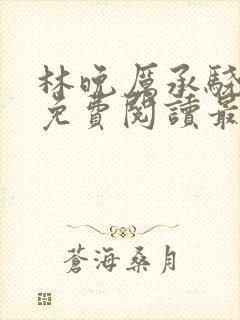 林晚厲承驍
免費閱讀最
蒼海桑月